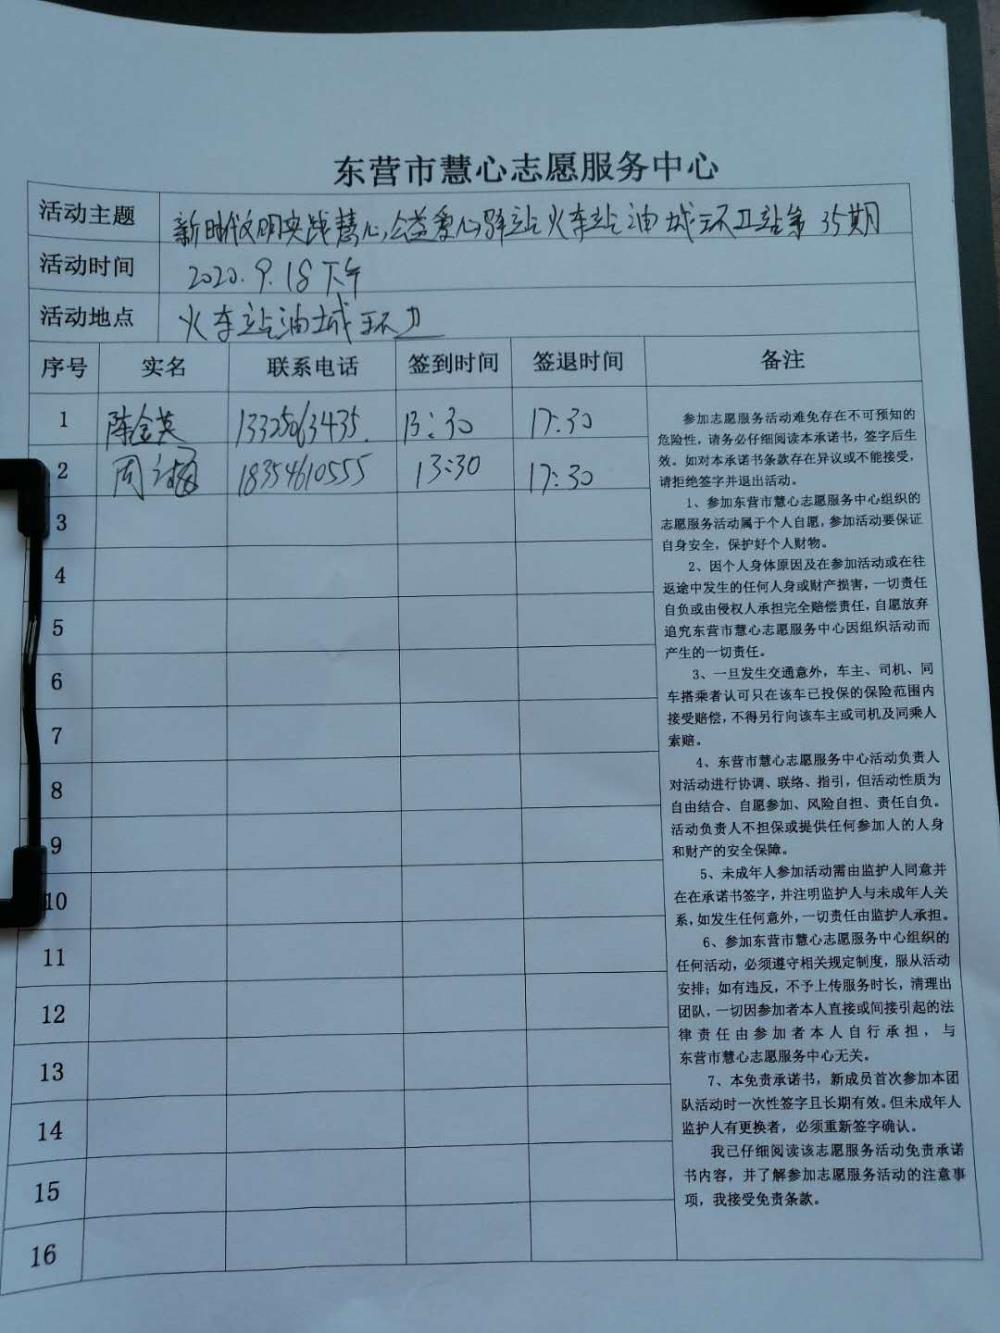 东营市慧心志愿服务中心
活动主题 新时代文明实践慧心公益爱心驿站火车站油城环卫站第35期
活动时间 2020.9.18下午
活动地点 火车站油城环卫
序号 实名 联系电话 签到时间 签退时间 备注
1 陈金英 13325063435. 13:30 17:30
2 周 18354610555 13:30 17:30
3
4
5
6
7
8
9
10
11
12
13
14
15
16
参加志愿服务活动难免存在不可预知的
危险性，请务必仔细阅读本承诺书，签字后生
效。如对本承诺书条款存在异议或不能接受，
请拒绝签字并退出活动。
1、参加东营市慧心志愿服务中心组织的
志愿服务活动属于个人自愿，参加活动要保证
自身安全，保护好个人财物。
2、因个人身体原因及在参加活动或在往
返途中发生的任何人身或财产损害，一切责任
自负或由侵权人承担完全赔偿责任，自愿放弃
追究东营市慧心志愿服务中心因组织活动而
产生的一切责任。
3、一旦发生交通意外，车主、司机、同
车搭乘者认可只在该车已投保的保险范围内
接受赔偿，不得另行向该车主或司机及同乘人
索赔。
4、东营市慧心志愿服务中心活动负责人
对活动进行协调、联络、指引，但活动性质为
自由结合、自愿参加、风险自担、责任自负。
活动负责人不担保或提供任何参加人的人身
和财产的安全保障。
5、未成年人参加活动需由监护人同意并
在在承诺书签字，并注明监护人与未成年人关
系，如发生任何意外，一切责任由监护人承担。
6、参加东营市慧心志愿服务中心组织的
任何活动，必须遵守相关规定制度，服从活动
安排；如有违反，不予上传服务时长，清理出
团队，一切因参加者本人直接或间接引起的法
律责任由参加者本人自行承担，与
东营市慧心志愿服务中心无关。
7、本免责承诺书，新成员首次参加本团
队活动时一次性签字且长期有效。但未成年人
监护人有更换者，必须重新签字确认。
我已仔细阅读该志愿服务活动免责承诺
书内容，并了解参加志愿服务活动的注意事
项，我接受免责条款。